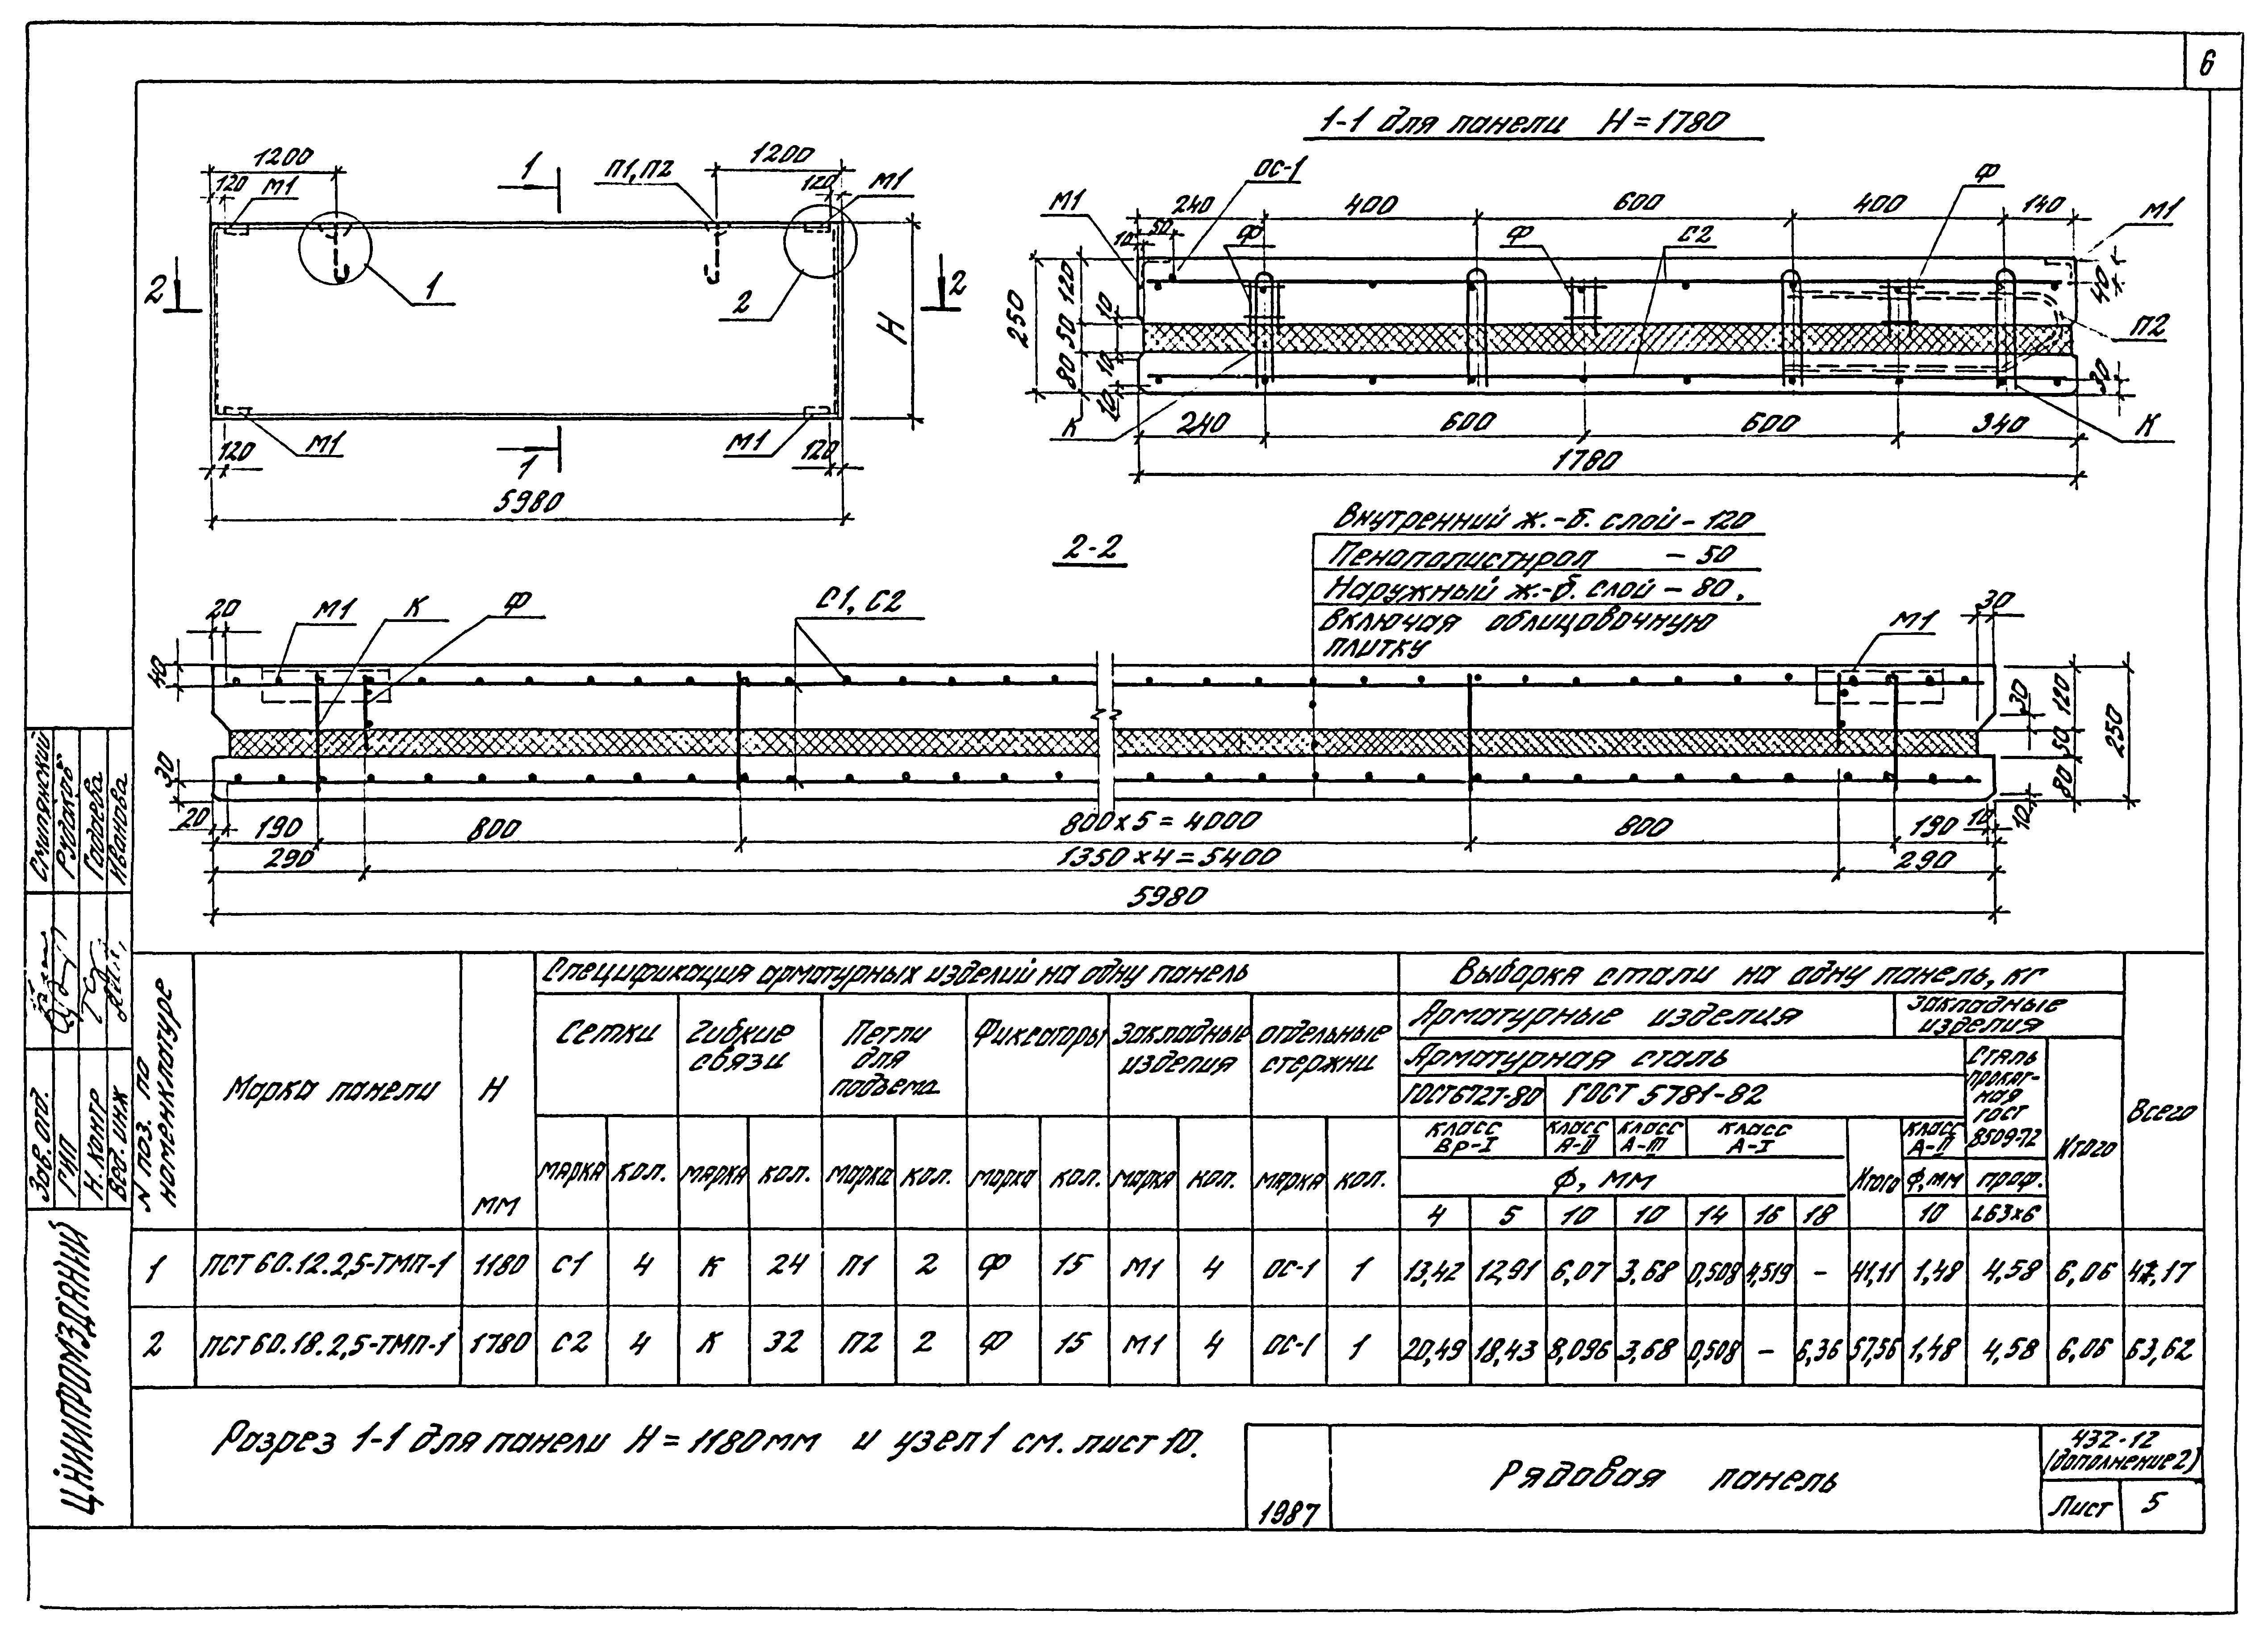 6
1-1 для панели Н=1780
1200
1
П1,П2
1200
120
М1
120
М1
2
2
1
2
Н
М1
М1
120
120
1
5980
ОС-1
М1
240
400
600
400
140
Ф
М1
50
10
Ф
Ф
С2
250
120
50
80
10
10
10
40
П2
30
К
240
600
600
340
К
1780
Внутренний ж.-б. слой - 120
Пенополистирол - 50
Наружный ж.-б. слой - 80,
включая облицовочную
плитку
2-2
20
М1
К
Ф
С1, С2
М1
30
40
30
30
120
50
80
250
10
20
190
800
800×5=4000
800
190
10
290
1350×4=5400
290
5980
N поз. по номенклатуре
Марка панели
Н
мм
Спецификация арматурных изделий на одну панель
Выборка стали на одну панель, кг
Сетки
Гибкие связи
Петли для подъема
Фиксаторы
Закладные изделия
Отдельные стержни
Арматурные изделия
Закладные изделия
Арматурная сталь
Сталь прокатная ГОСТ 8509-72
ГОСТ 6727-80
ГОСТ 5781-82
Итого
Всего
марка кол. марка кол. марка кол. марка кол. марка кол. марка кол.
класс Вр-I
класс А-II
класс А-III
класс А-I
Итого
класс А-II
Ф, мм
Ф, мм
проф.
4 5 10 10 14 16 18 10 L63×6
1 ПСТ 60.12.2,5-ТМП-1 1180 С1 4 К 24 П1 2 Ф 15 М1 4 ОС-1 1 13,42 12,91 6,07 3,68 0,508 4,519 - 41,11 1,48 4,58 6,06 47,17
2 ПСТ 60.18.2,5-ТМП-1 1780 С2 4 К 32 П2 2 Ф 15 М1 4 ОС-1 1 20,49 18,43 8,096 3,68 0,508 - 6,36 57,56 1,48 4,58 6,06 63,62
Разрез 1-1 для панели Н=1180мм и узел 1 см. лист 10.
1987
Рядовая панель
432-12
(дополнение 2)
Лист 5
Зав. отд. Смилянский
ГИП Рудаков
Н. контр Гадаева
Вед. инж Иванова
ЦНИИПРОМЗДАНИЙ